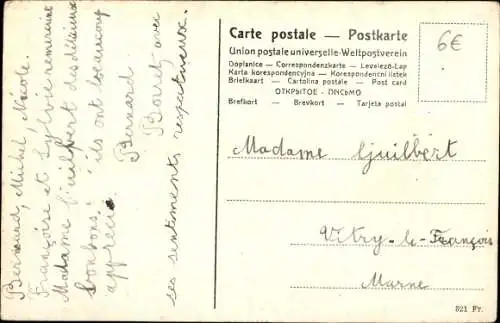 Bernard, Michel, Nicole.
Françoise et Sylvie remercient
Madame Guilbert des délicieux
bonbons! ils ont beaucoup
apprécié.
Bernard
Bouret avec
ses sentiments respectueux.
Carte postale — Postkarte
Union postale universelle-Weltpostverein
Dopisnice — Correspondenzkarte — Levelező-Lap
Karta korespondencyjna — Korespondenční lístek
Briefkaart — Cartolina postale — Post card
ОТКРЫТОЕ - ПИСЬМО
Brefkort — Brevkort — Tarjeta postal
6€
Madame Guilbert
Vitry-le-François
Marne
521 Fr.